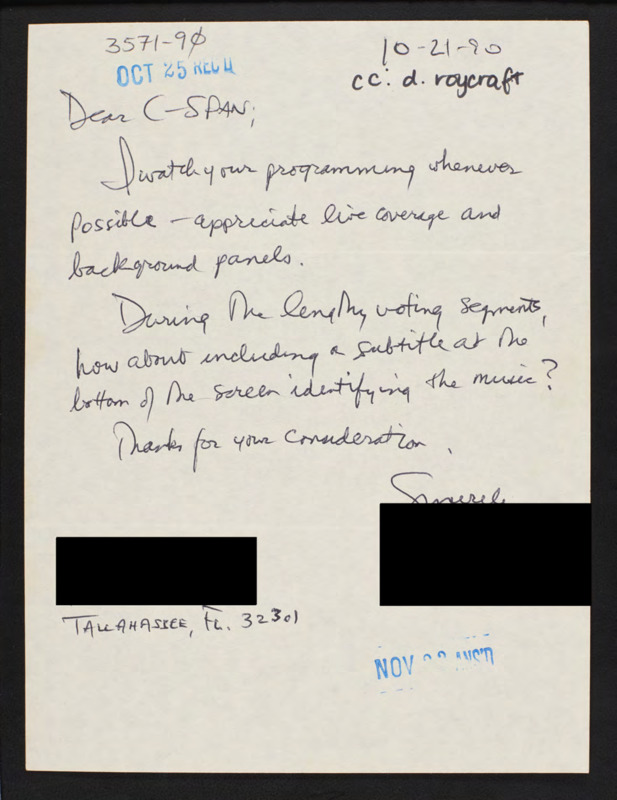 3571-90
10-21-90
OCT 25 REC'D
cc: d. roycraft
Dear C-SPAN;
I watch your programming whenever
possible – appriciate live coverage and
background panels.
During the lengthy voting segments,
how about including a subtitle at the
bottom of the screen identifying the music?
Thanks for your consideration.
TALLAHASSEE, FL. 32301
NOV ANS'D